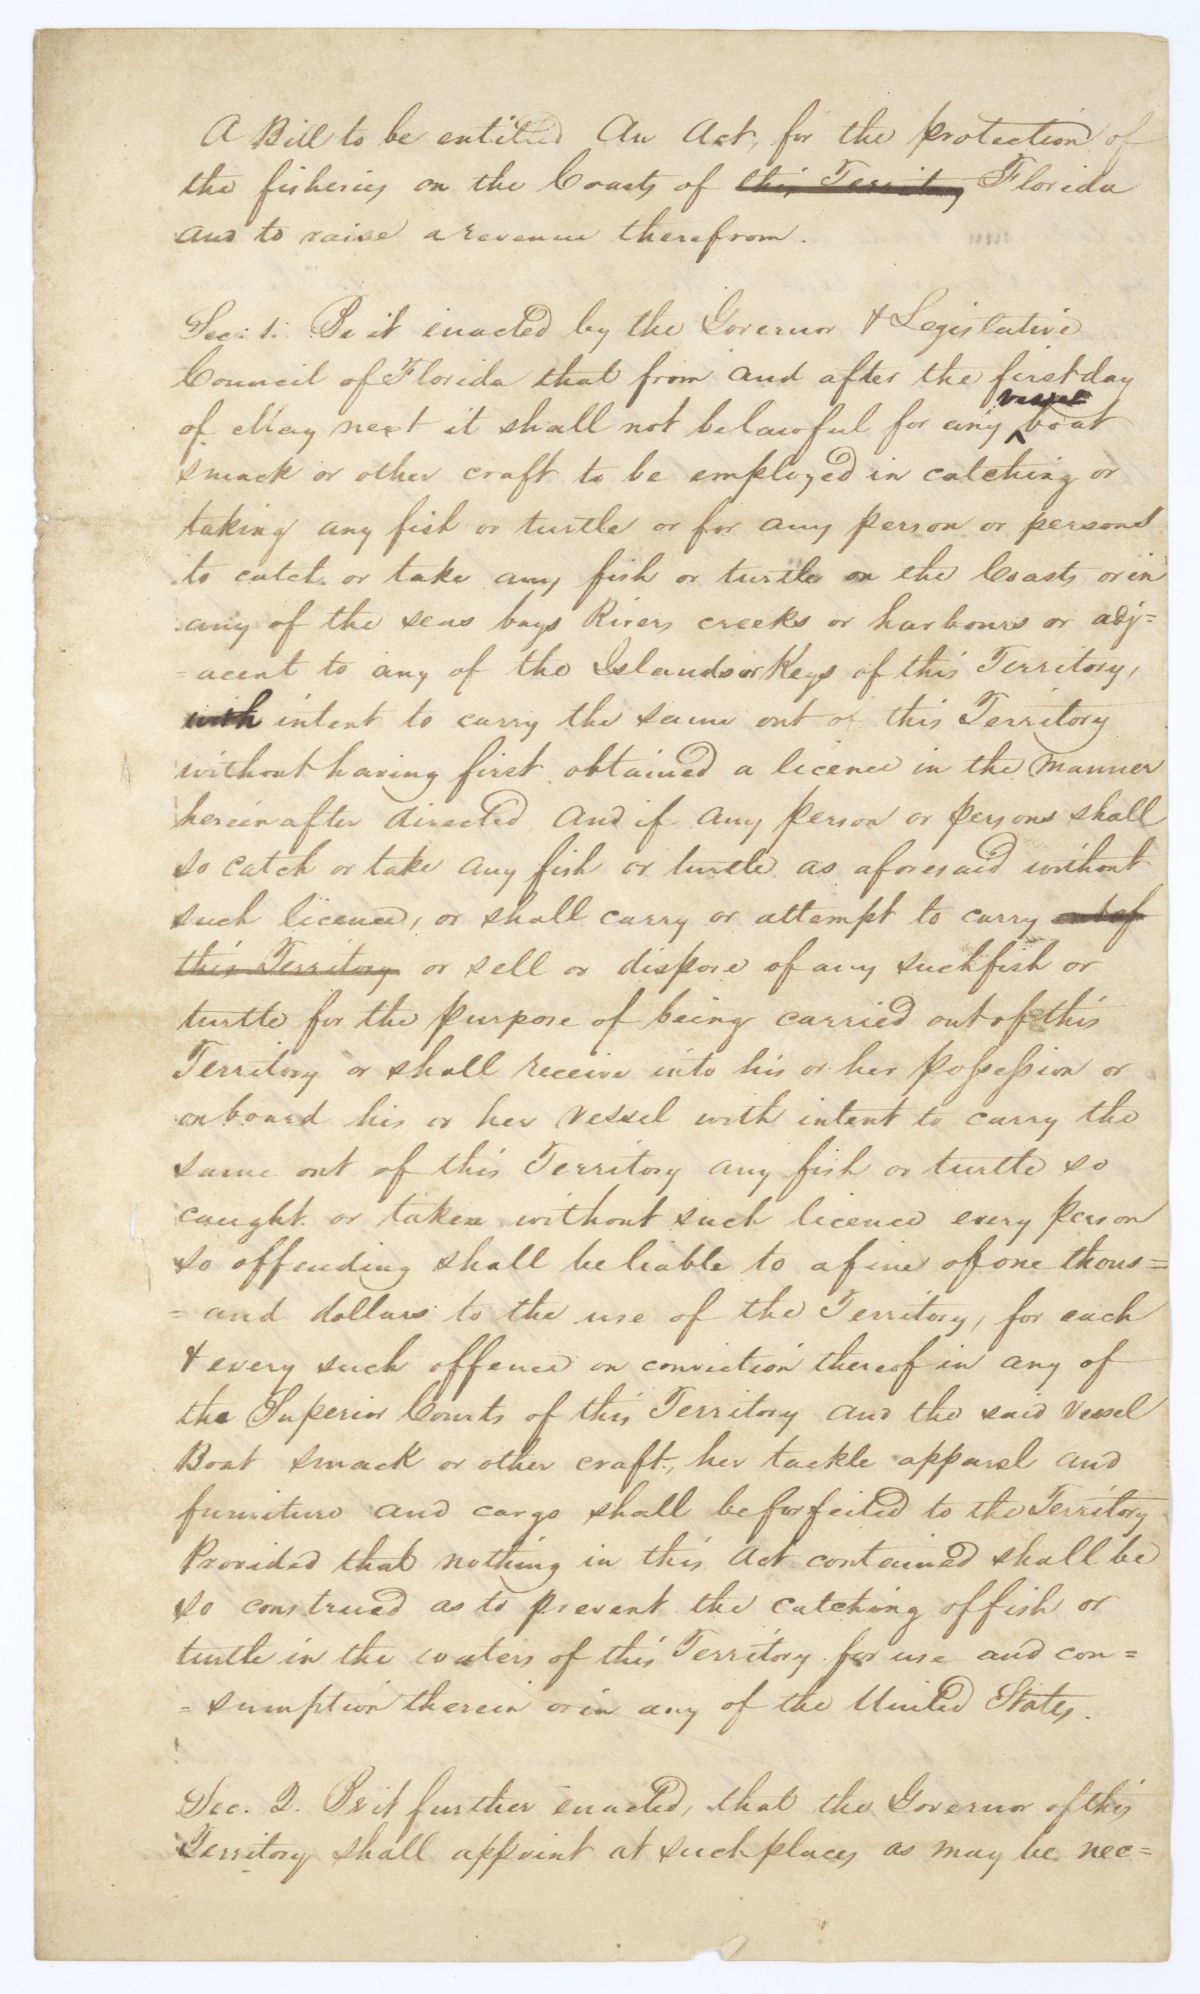 A Bill to be entitled An Act, for the protection of
the fisheries on the Coasts of this Territory Florida
and to raise a revenue therefrom.
Sec: 1. Be it enacted by the Governor & Legislative
Council of Florida that from and after the first day
of May next it shall not be lawful for any vessel boat
smack or other craft to be employed in catching or
taking any fish or turtle or for any person or persons
to catch or take any fish or turtle on the Coasts or in
any of the seas bays Rivers creeks or harbours or adj=
=acent to any of the Islands or Keys of this Territory,
with intent to carry the same out of this Territory
without having first obtained a licence in the manner
hereinafter directed and if any person or persons shall
so catch or take any fish or turtle as aforesaid without
such licence, or shall carry or attempt to carry out of
this Territory or sell or dispose of any such fish or
turtle for the purpose of being carried out of this
Territory or shall receive into his or her possession or
on board his or her vessel with intent to carry the
same out of this Territory any fish or turtle so
caught or taken without such licence every person
so offending shall be liable to a fine of one thous=
=and dollars to the use of the Territory, for each
& every such offence on conviction thereof in any of
the Superior Courts of this Territory and the said vessel
Boat smack or other craft, her tackle apparel and
furniture and cargo shall be forfeited to the Territory
Provided that nothing in this Act contained shall be
so construed as to prevent the catching of fish or
turtle in the waters of this Territory for use and con=
=sumption therein or in any of the United States.
Sec. 2. Be it further enacted, that the Governor of this
Territory shall appoint at such places as may be nec=